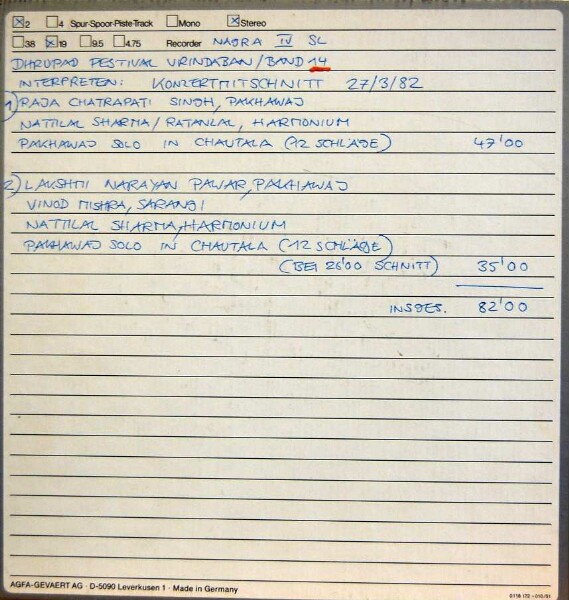 ☒2 ☐4 Spur-Spoor-Piste-Track ☐Mono ☒Stereo
☐38 ☒19 ☐9.5 ☐4.75 Recorder NAGRA IV SL
DHRUPAD FESTIVAL VRINDABAN/BAND 14
INTERPRETEN: KONZERTMITSCHNITT 27/3/82
1) RAJA CHATRAPATI SINGH, PAKHAWAJ
NATTILAL SHARMA/RATANLAL, HARMONIUM
PAKHAWAJ SOLO IN CHAUTALA (12 SCHLÄGE) 47'00
2) LAKSHMI NARAYAN PAWAR, PAKHAWAJ
VINOD MISHRA, SARANGI
NATTILAL SHARMA, HARMONIUM
PAKHAWAJ SOLO IN CHAUTALA (12 SCHLÄGE)
(BEI 26'00 SCHNITT) 35'00
INSGES. 82'00
AGFA-GEVAERT AG · D-5090 Leverkusen 1 · Made in Germany